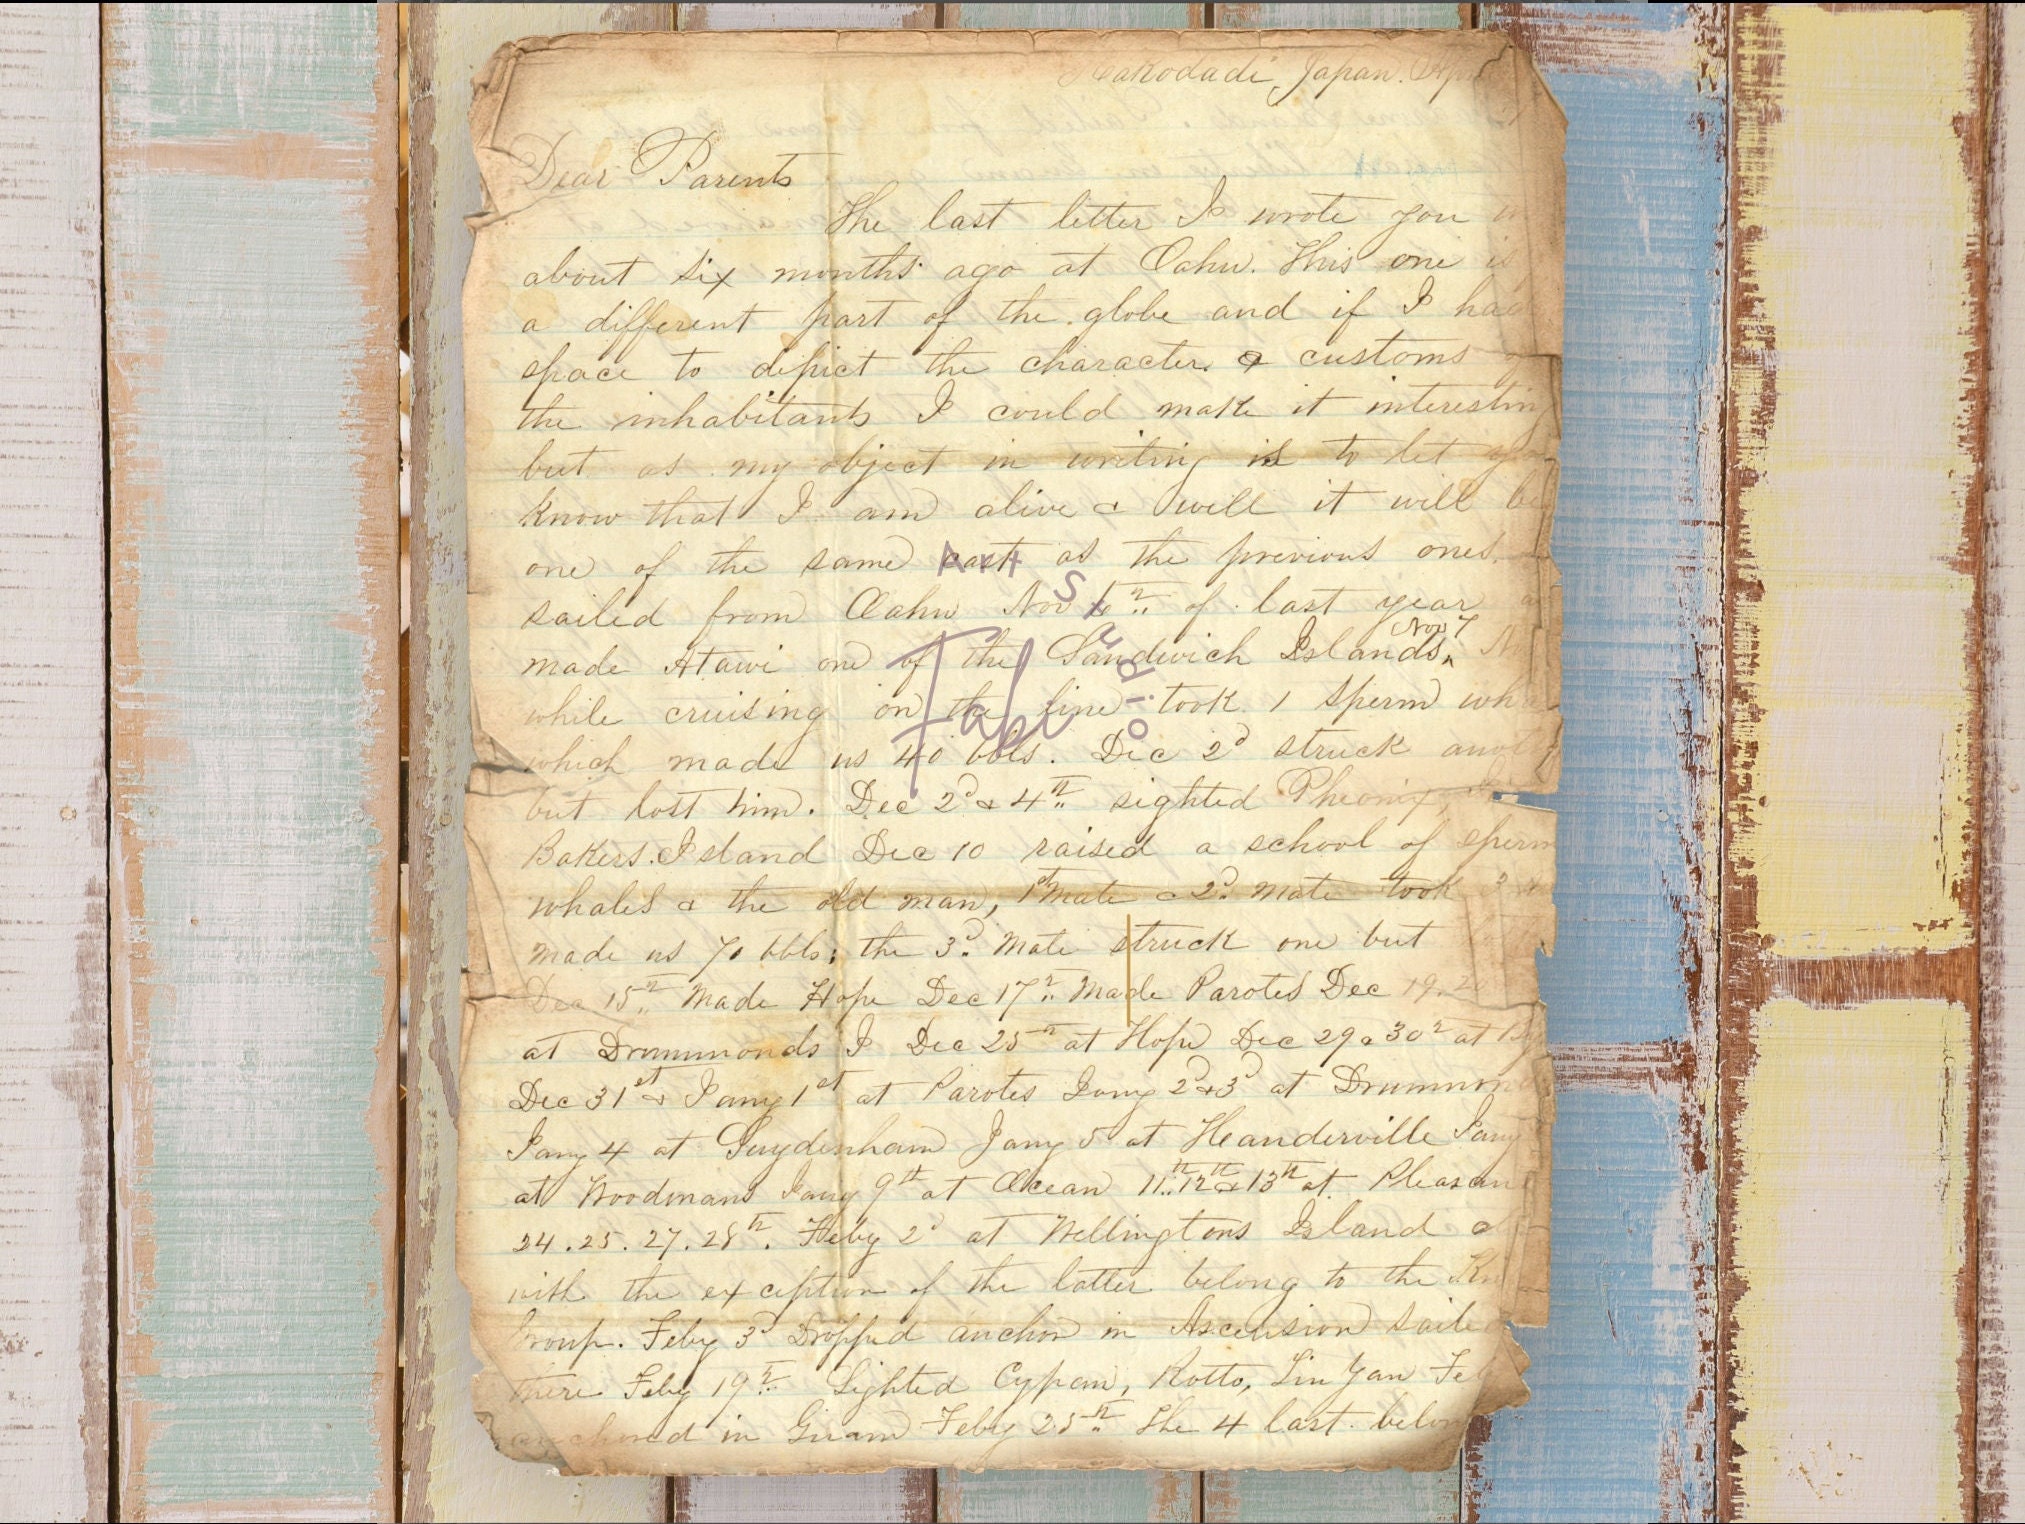 Hakodadi, Japan. Apr
Dear Parents
The last letter I wrote you
about six months ago at Oahu. This one is
a different part of the globe and if I had
space to depict the character & customs
the inhabitants I could make it interesting
but as my object in writing is to let you
know that I am alive & well it will be
one of the same cast as the previous ones.
sailed from Oahu Nov of last year
made Atawi one of the Sandwich Islands, Nov 7
while cruising on the line took 1 sperm wha
which made us 40 bbls. Dec 2d struck anot
but lost him. Dec 2d & 4th sighted Pheonix,
Bakers Island Dec 10 raised a school of sperm
whales & the old man, 1st Mate & 2d Mate took 3
made us 70 bbls; the 3d Mate struck one but
Dec 15th Made Hope Dec 17th Made Parotes Dec 19.
at Drummonds I Dec 25th at Hope Dec 29 & 30th at
Dec 31st & Jany 1st at Parotes Jany 2d & 3d at Drummond
Jany 4 at Suydenham Jany 5 at Heanderville Jany
at Woodmans Jany 9th at Ocean 11th 12th & 13th at Pleasan
24.25.27.28th. Feby 2d at Wellingtons Island
with the exception of the latter belong to the
Group. Feby 3d Dropped anchor in Ascension saile
there Feby 19th Sighted Cypan, Rotto, Tin Yan Feb
anchored in Guam Feby 25th The 4 last belon
Art Studio
Fabi